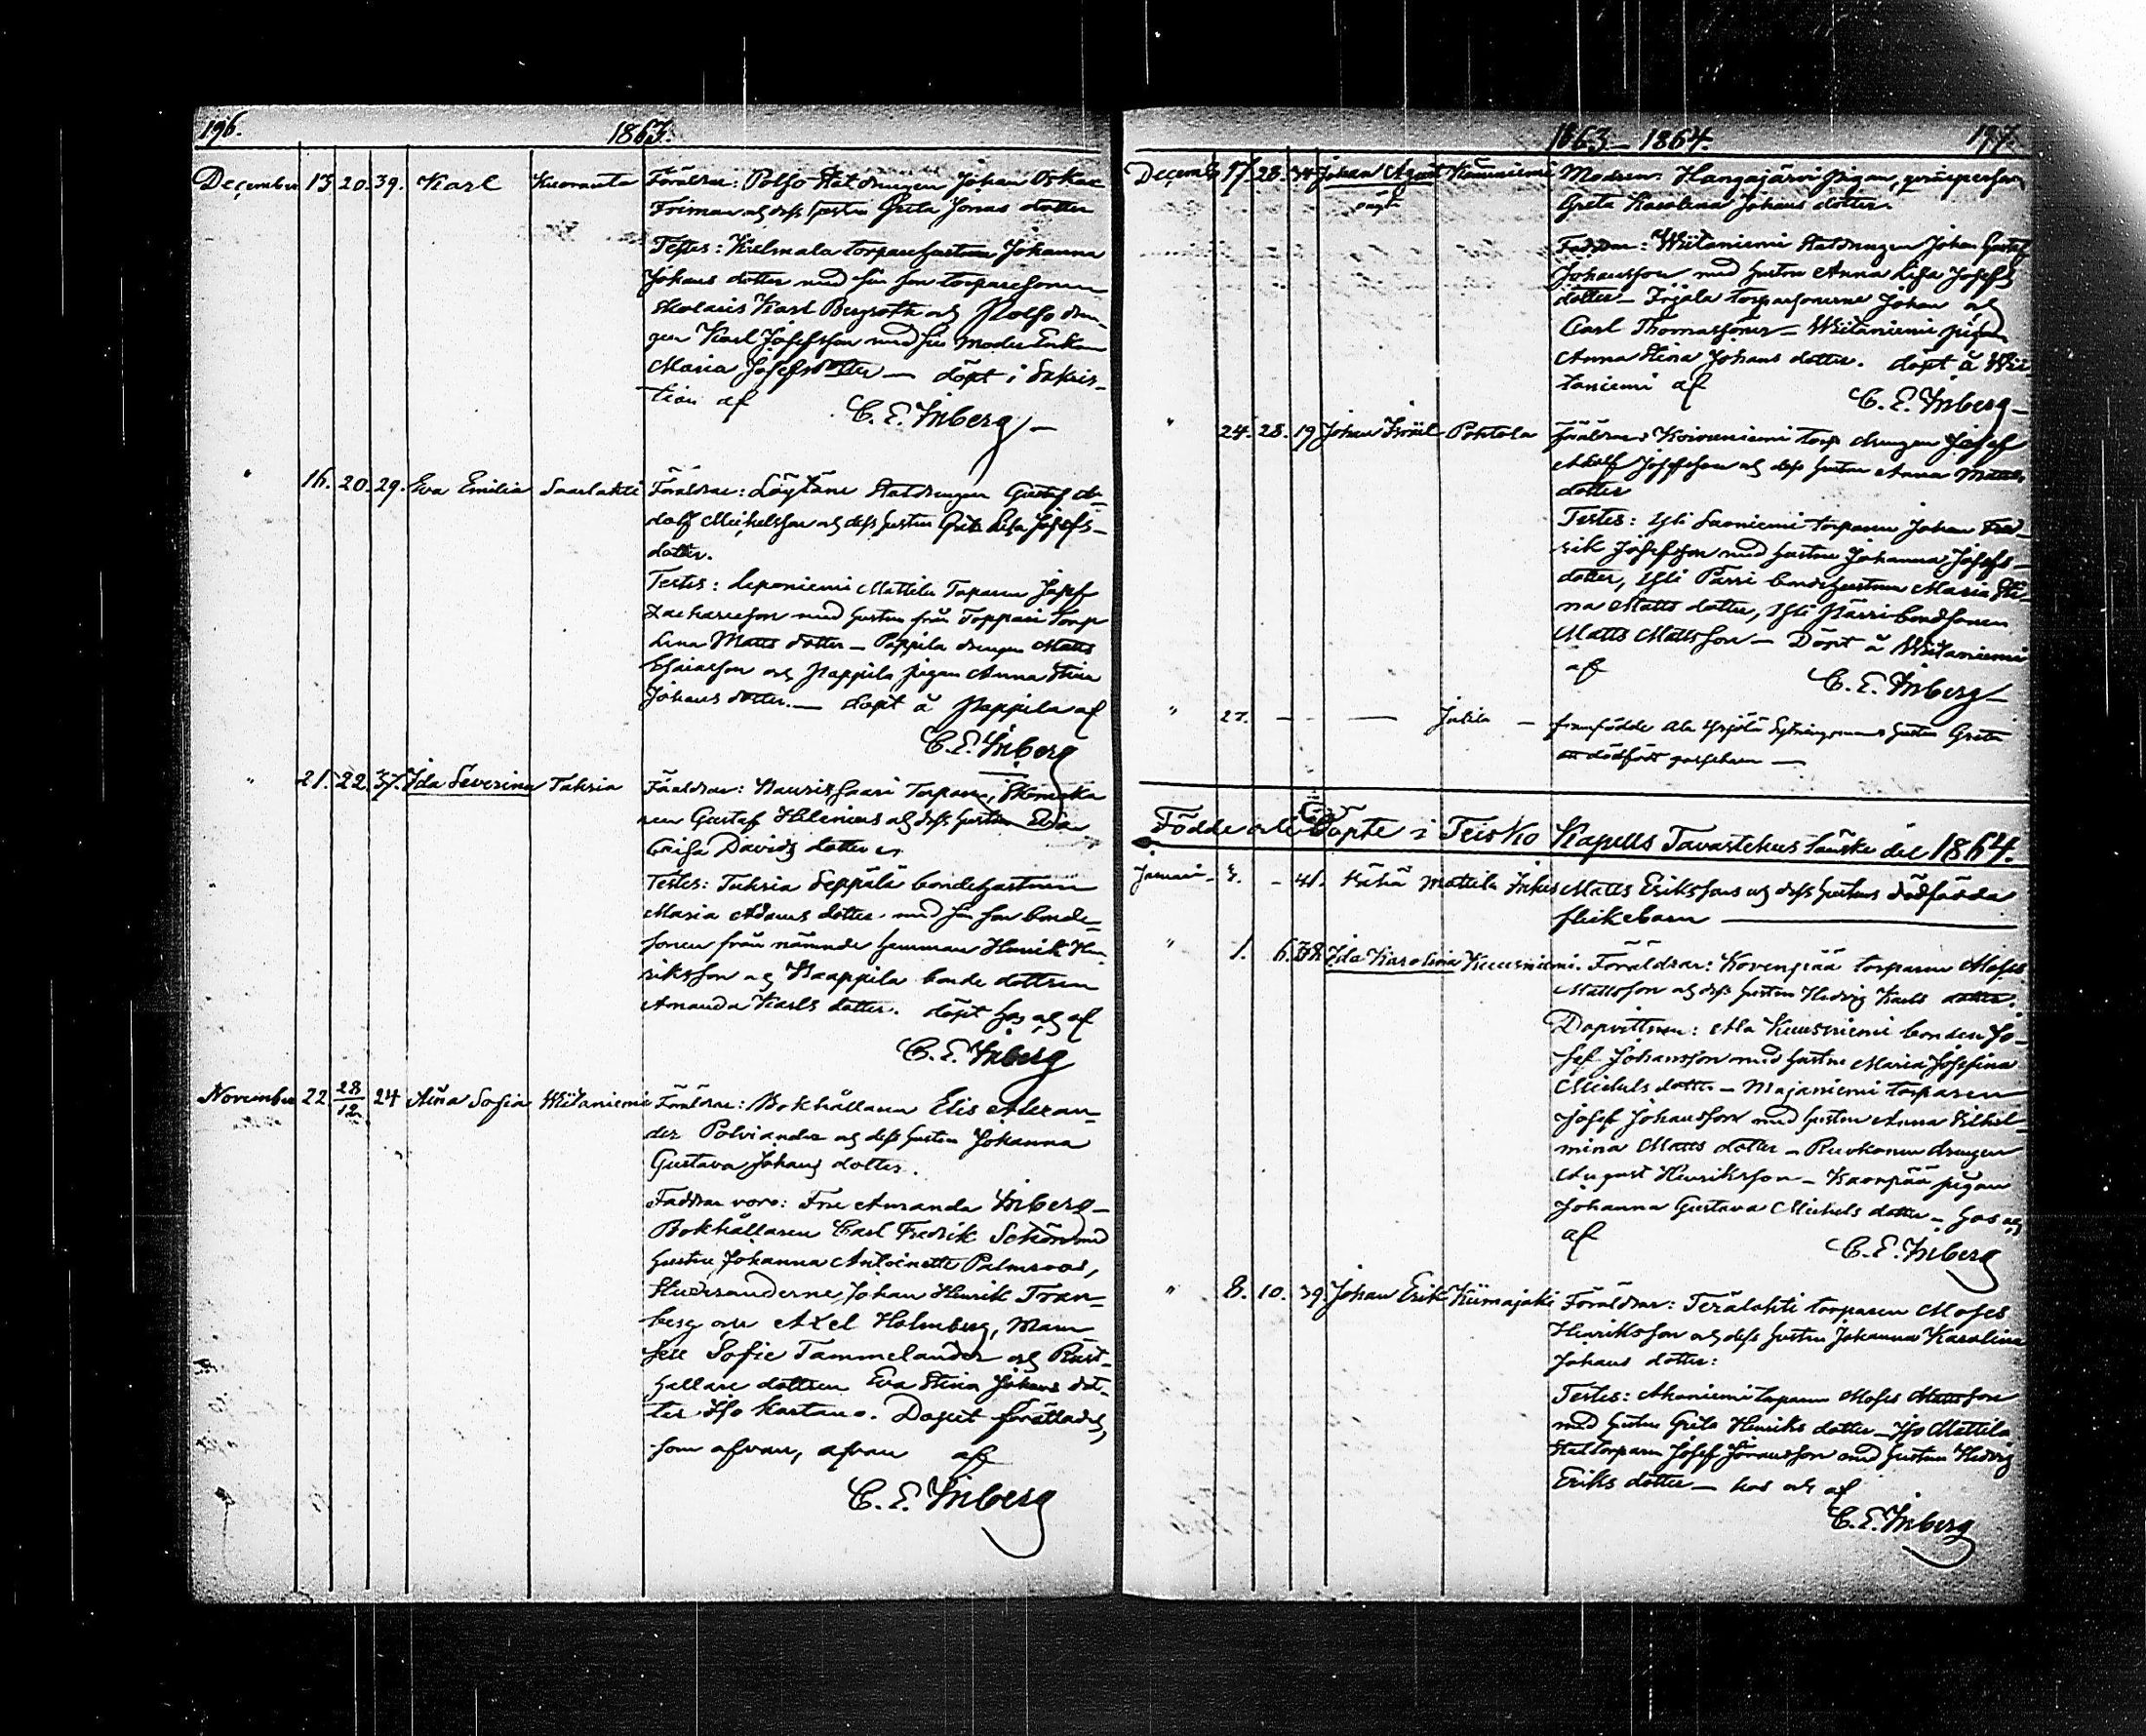 196.
1863.
December 13. 20. 39. Karl Kuoranta Föräldrar: Polso Statdrengen Johan Oskar
Friman och dess hustru Greta Jonas dotter
Testes: Kulmala torparehustrun Johanna
Johans dotter med sin son torparesonen
Karl Bergroth och Polso dren-
gen Karl Josefsson med sin Moder Enkan
Maria Josefsdotter — döpt i Sakris-
tian af C. E. Inberg —
" 16. 20. 29. Eva Emilia Saarlahti Föräldrar: Löytäne Statdrengen Gustaf A-
dolf Michelsson och dess hustru Greta Lisa Josefs-
dotter.
Testes: Leponiemi Mattila Torparen Josef
Zachariesson med hustru från Toppari Torp
Lena Matts dotter — Pappila drengen Matts
Esaiasson och Pappila pigan Anna Stina
Johans dotter. — döpt å Pappila af
C. E. Inberg
" 21. 22. 37. Ida Severina Taksia Föräldrar: Torparen, Skomaka-
ren Gustaf Helenius och dess hustru Eva
Caisa Davids dotter
Testes: Taksia Seppälä bondehustrun
Maria Adams dotter med sin son bonde-
sonen från nämnde hemman Henrik Hen-
riksson och Kaappila bonde dottren
Amanda Karls dotter. döpt hos och af
C. E. Inberg
November 22. 28/12 24 Aina Sofia Wiitaniemi Föräldrar: Bokhållaren Elis Alexan-
der Polviander och dess hustru Johanna
Gustava Johans dotter.
Faddrar voro: Fru Amanda Inberg —
Bokhållaren Carl Fredrik Schön med
hustru Johanna Antoinette Palmroos,
Studeranderne Johan Henrik Tran-
berg och Axel Holmberg, Mam-
sell Sofie Tammelander och Rust-
hållare dottren Eva Stina Johans dot-
ter Iso Kartano. Dopet förättades,
som ofvan, af
C. E. Inberg
1863 — 1864. 197.
December 17. 28. 34 Johan August Kämmeniemi Modren: Hangajärvi pigan,
Greta Karolina Johans dotter.
Faddrar: Wiitaniemi Statdrengen Johan Gustaf
Johansson med hustru Anna Lisa Josefs
dotter — torparesönerne Johan och
Carl Thomassöner — Wiitaniemi pigan
Anna Stina Johans dotter. döpt å Wii-
taniemi af C. E. Inberg —
" 24. 28. 19 Johan Pohtola Föräldrar: Koivuniemi torp drengen Josef
Adolf Josefsson och dess hustru Anna Matts
dotter
Testes: Yli Saoniemi torparen Johan Fred-
rik Josefsson med hustru Johanna Josefs-
dotter, Yli Pärri bondehustrun Maria Sti-
na Matts dotter, Yli Pärri bondsonen
Matts Mattsson — Döpt å Wiitaniemi
af C. E. Inberg —
" 27. — — — — framfödde Ala Yrjölä hustru Greta
ett dödfödt gossebarn —
Födde och Döpte i Teisko Kapells Tavastehus Länske del 1864.
Januari 3. — 41. Mattila Matts Erikssons och dess hustrus dödfödda
flickebarn —
" 1. 6. 38. Ida Karolina Kuusniemi. Föräldrar: Kovenpää torparen Moses
Mattsson och dess hustru Hedvig Karls dotter.
Dopvittnen: Ala Kuusniemi bonden Jo-
sef Johansson med hustru Maria Josefina
Michels dotter — Majaniemi torparen
Josef Johansson med hustru Anna Vilhel-
mina Matts dotter — drengen
August Henriksson — Kaanpää pigan
Johanna Gustava Michels dotter — hos och
af C. E. Inberg
" 8. 10. 39. Johan Erik Kiimajoki Föräldrar: Terälahti torparen Moses
Henriksson och dess hustru Johanna Karolina
Johans dotter:
Testes: Ahoniemi torparen Moses Mattsson
med hustru Greta Henriks dotter — Iso Mattila
Stattorparen Josef Johansson med hustrun Hedvig
Eriks dotter — hos och af
C. E. Inberg